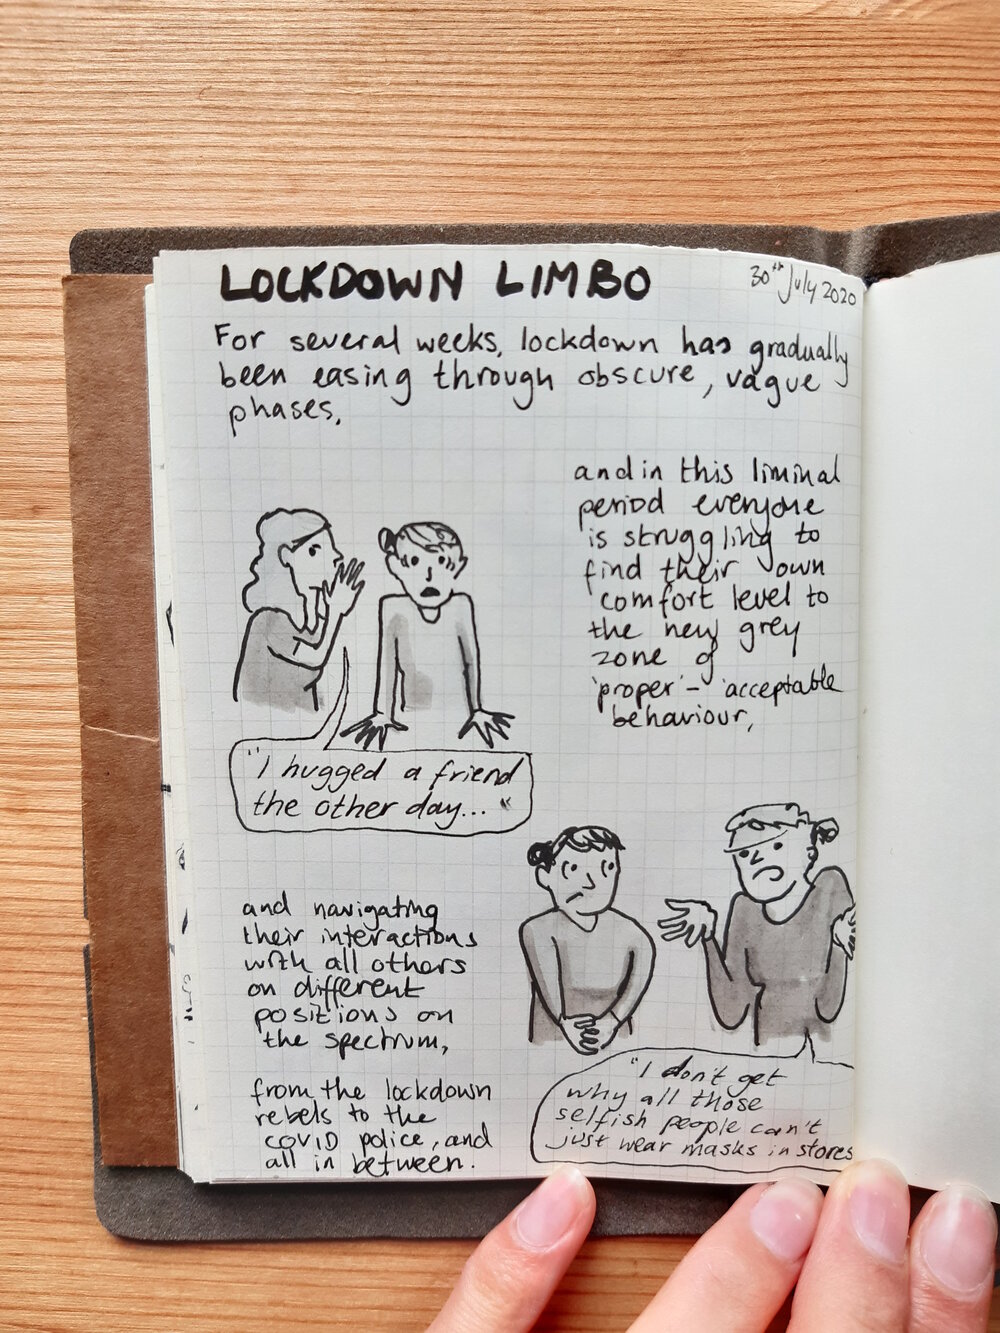 LOCKDOWN LIMBO
30th July 2020
For several weeks, lockdown has gradually
been easing through obscure, vague
phases,
and in this liminal
period everyone
is struggling to
find their own
comfort level to
the new grey
zone of
'proper' - 'acceptable
behaviour,
"I hugged a friend
the other day..."
and navigating
their interactions
with all others
on different
positions on
the spectrum,
from the lockdown
rebels to the
COVID police, and
all in between.
"I don't get
why all those
selfish people can't
just wear masks in stores